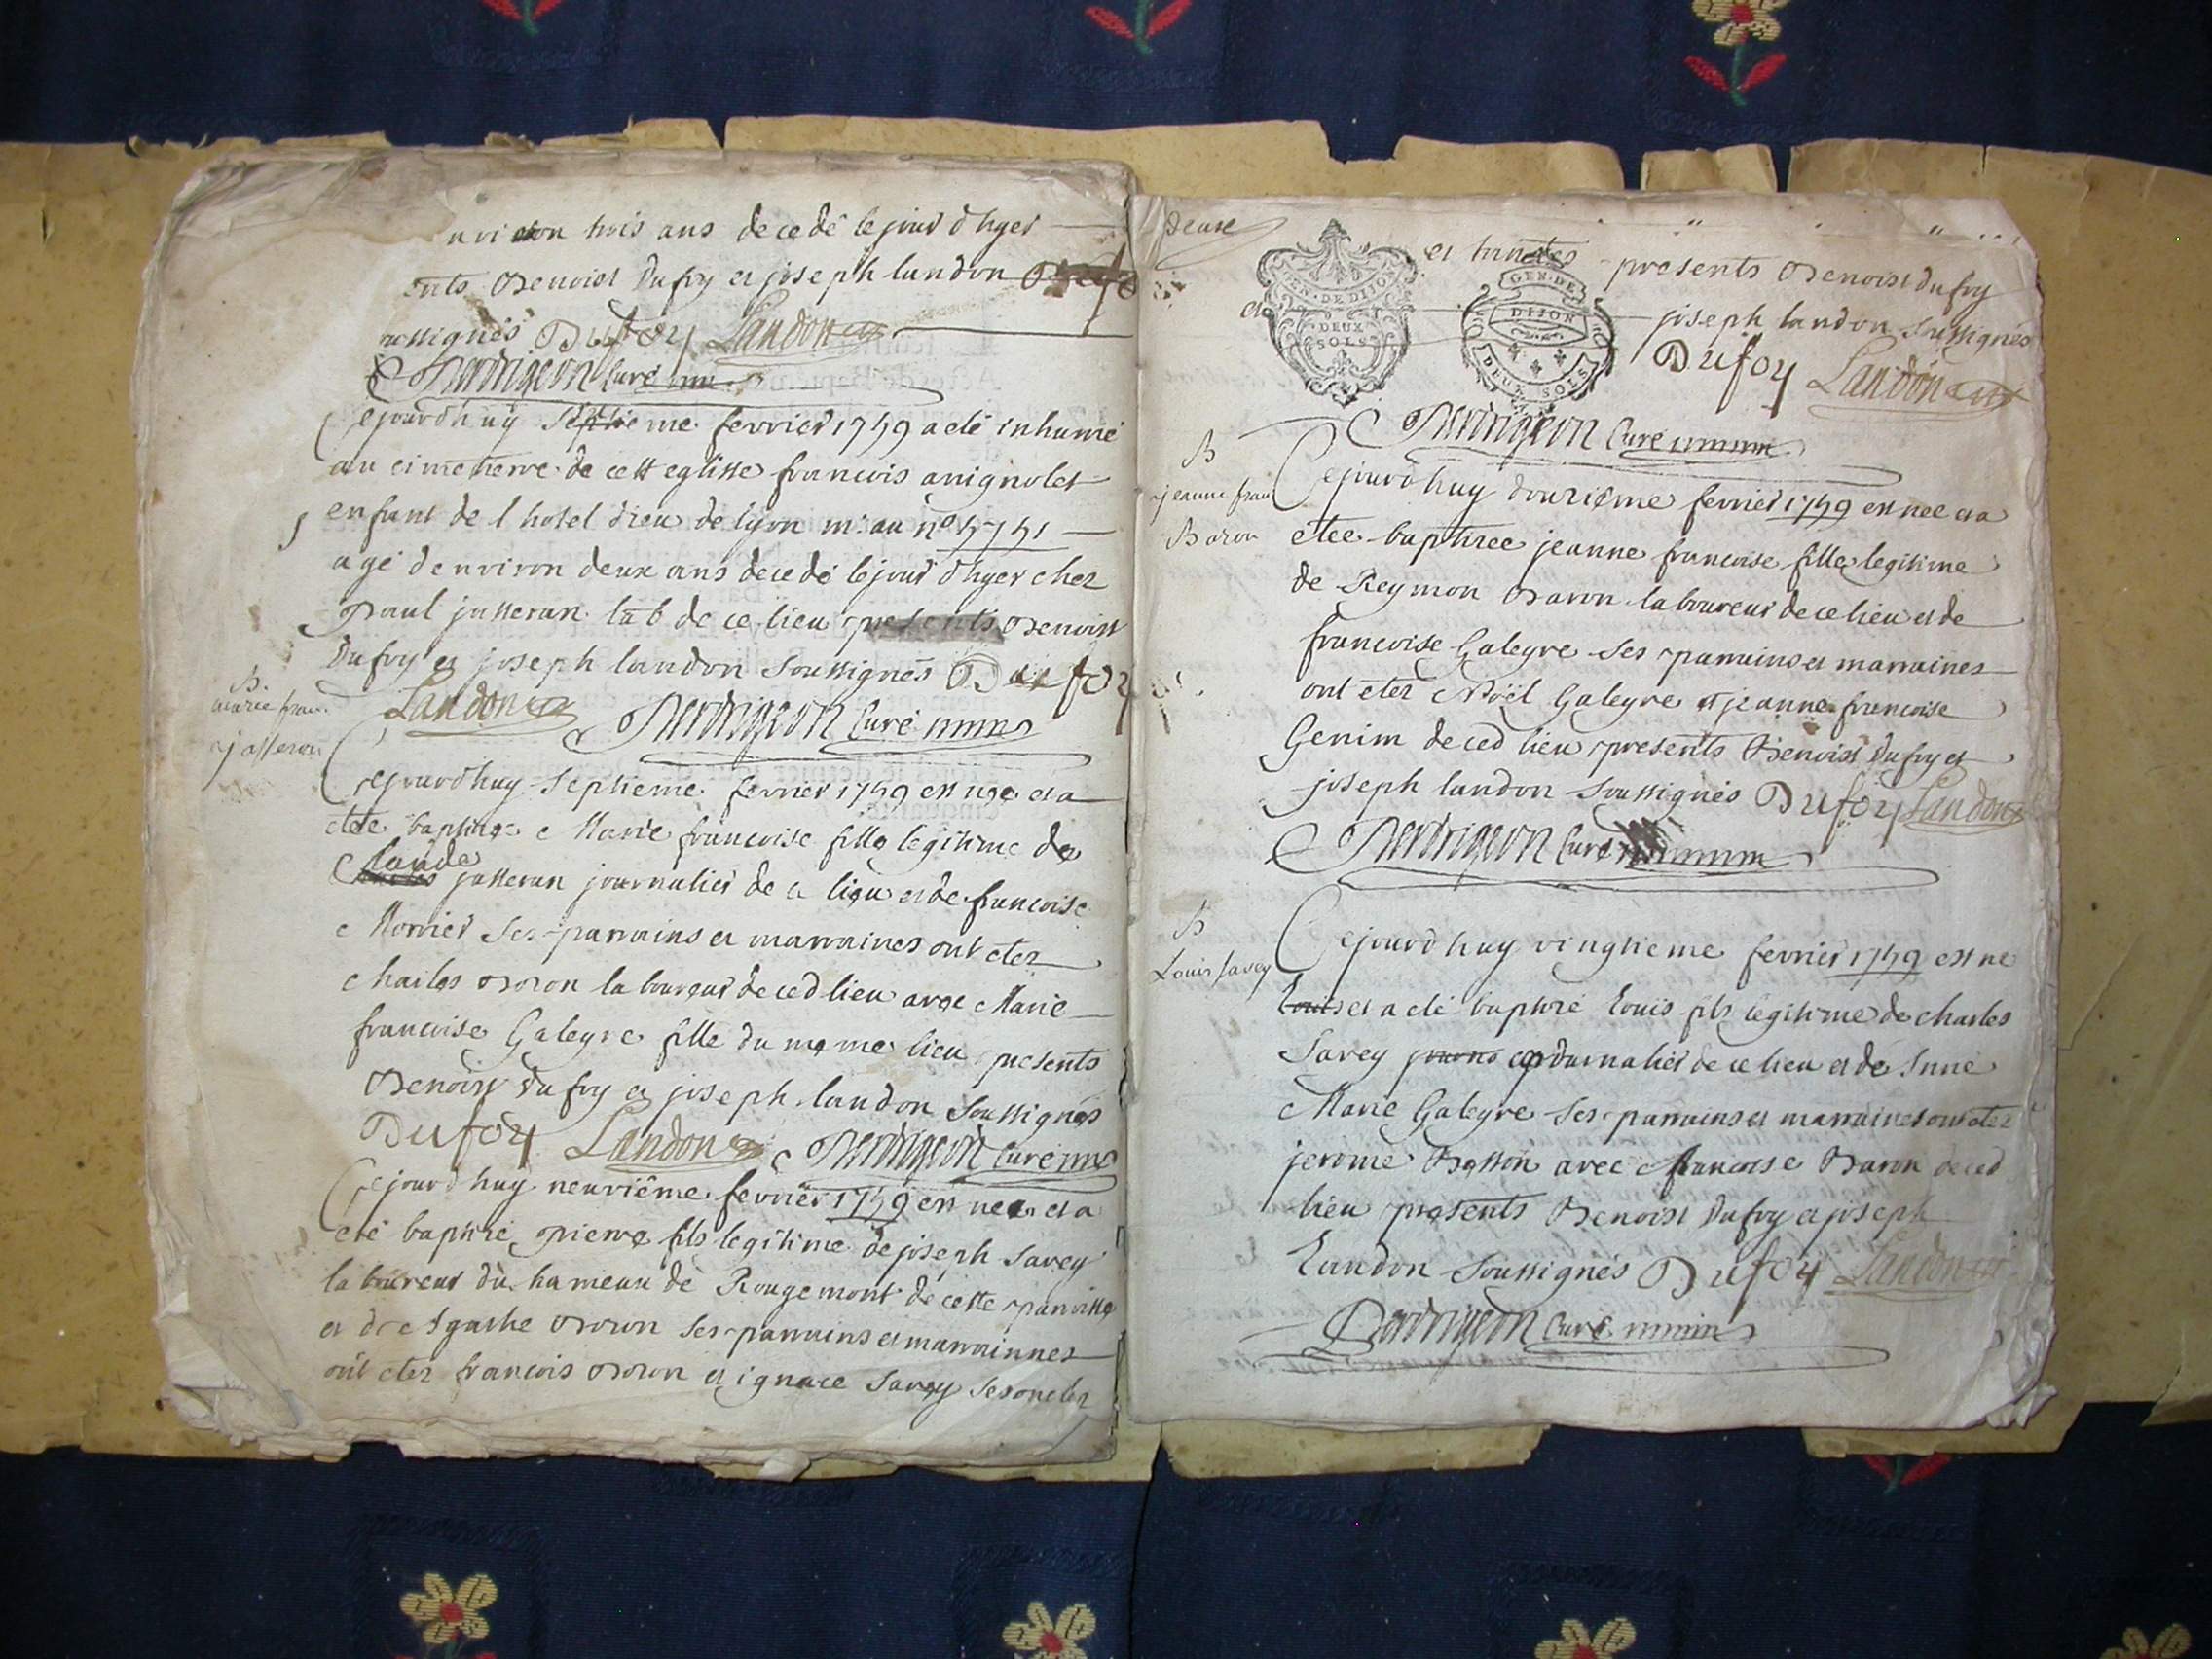 nviron trois ans decedé le jour d hyer
ents Benoist Dufoy et joseph landon
oussignés Dufoy Landon
Perdrigeon Curé
Cejourdhuy septieme fevrier 1759 a eté inhumé
au cimetierre de cett eglisse francois anignolet
enfant de l hotel dieu de lyon m. au n° 5751
agé d environ deux ans decedé le jour d hyer chez
Paul jasseran lab de ce lieu presents Benoist
Dufoy et joseph landon soussignés Dufoy
B.
marie fran.
jasseran
Landon Perdrigeon Curé
Cejourdhuy septieme fevrier 1759 est nee et a
etée baptisee Marie francoise fille legitime de
Claude
jasseran journalier de ce lieu et de francoise
Morrier ses parrains et marraines ont etez
Charles Boron laboureur de ced lieu avec Marie
francoise Galeyre fille du meme lieu presents
Benoist Dufoy et joseph landon soussignés
Dufoy Landon Perdrigeon Curé
Cejourdhuy neuvième fevrier 1759 est ne et a
eté baptisé Pierre fils legitime de joseph Savey
laboureur du hameau de Rougemont de cette parroisse
et de Agathe Boron ses parrains et marrainnes
ont etez francois Boron et ignace Savey ses oncles
Deuxe
et tantes presents Benoist Dufoy
et
joseph landon soussignés
GEN. DE DIJON
DEUX
SOLS
GEN. DE
DIJON
DEUX SOLS
Dufoy Landon
Perdrigeon Curé
B
jeanne fran
Baron
Cejourdhuy douzième fevrier 1759 est nee et a
etee baptisee jeanne francoise fille legitime
de Reymon Baron laboureur de ce lieu et de
francoise Galeyre ses parrains et marraines
ont etez Noël Galeyre et jeanne francoise
Genim de ced lieu presents Benoist Dufoy et
joseph landon soussignés Dufoy Landon
Perdrigeon Curé
B
Louis Savey
Cejourdhuy vingtieme fevrier 1759 est ne
Louis et a eté baptisé Louis fils legitime de charles
Savey journalier de ce lieu et de Anne
Marie Galeyre ses parrains et marraines ont etez
jerome Besson avec francoise Baron de ced
lieu presents Benoist Dufoy et joseph
Landon soussignés Dufoy Landon
Perdrigeon Curé